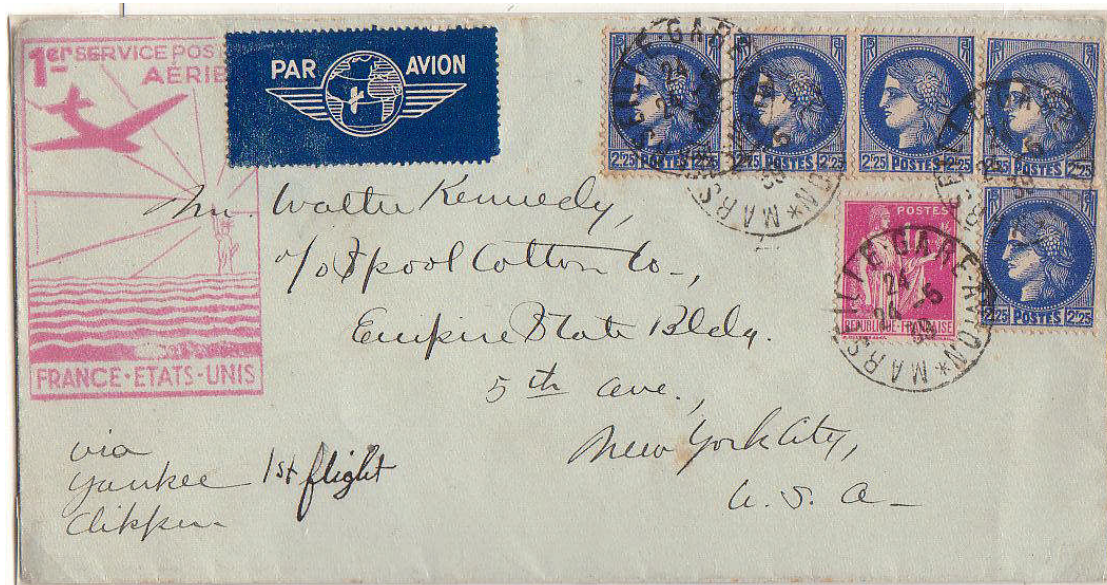 1er SERVICE POS
AÉRIE
FRANCE·ETATS-UNIS
PAR AVION
2f25 POSTES 2f25
2f25 POSTES 2f25
2f25 POSTES 2f25
2f25 POSTES 2f25
2f25 POSTES 2f25
POSTES
REPUBLIQUE FRANÇAISE
MARSEILLE-GARE AVION *
24
24 -5
39
Mr. Walter Kennedy,
c/o Spool Cotton Co-,
Empire State Bldg.
5th ave.,
New York City,
U.S.A-
via
Yankee 1st flight
Clipper